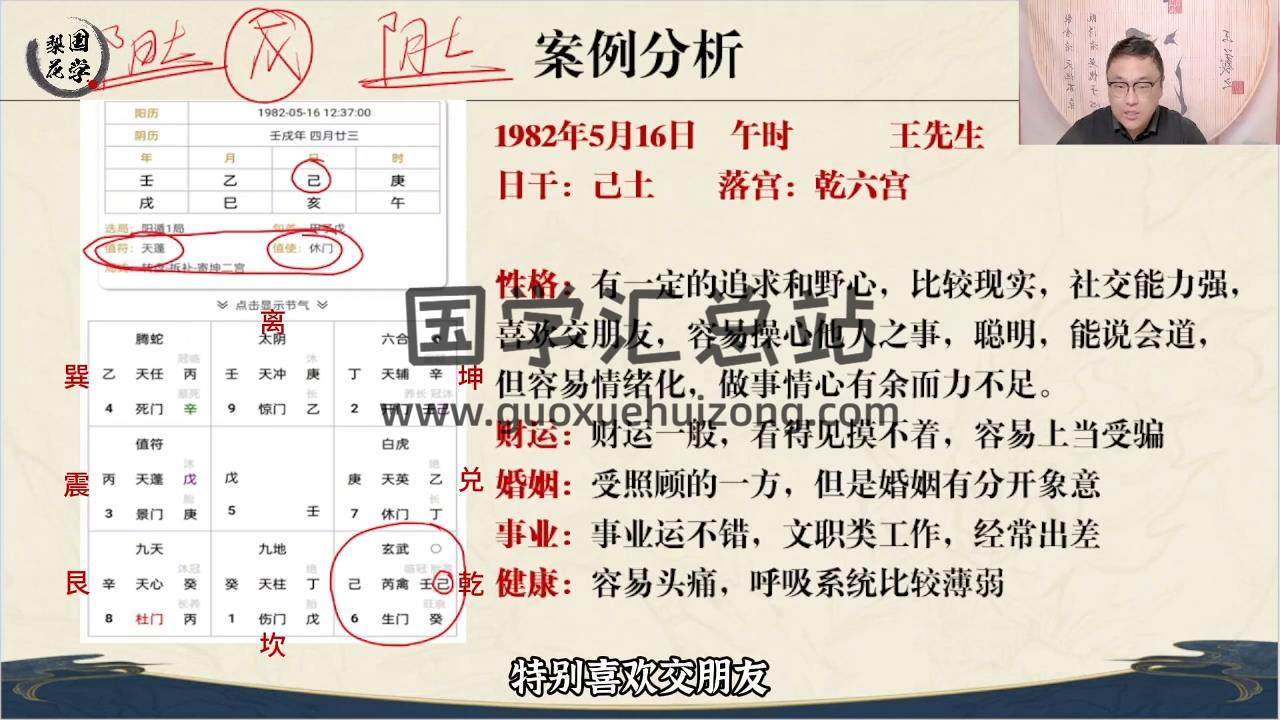 梨花国学
阳土 戊 阴土
案例分析
阳历 1982-05-16 12:37:00
阴历 壬戌年 四月廿三
年 月 日 时
壬 乙 己 庚
戌 巳 亥 午
选局: 阳遁1局 旬首: 甲子戊
值符: 天蓬 值使: 休门
转盘-拆补-寄坤二宫
点击显示节气
离
腾蛇 太阴 六合
冠临 沐
巽 乙 天任 丙 壬 天冲 庚 丁 天辅 辛 坤
墓死 长 养长 冠沐
4 死门 辛 9 惊门 乙 2
值符 白虎
沐 绝
震 丙 天蓬 戊 戊 庚 天英 乙 兑
胎 长
3 景门 庚 5 壬 7 休门 丁
九天 九地 玄武 ○
沐冠 绝 临冠
艮 辛 天心 癸 癸 天柱 丁 己 芮禽 壬己 乾
长养 胎 旺衰
8 杜门 丙 1 伤门 戊 6 生门 癸
坎
1982年5月16日 午时 王先生
日干：己土 落宫：乾六宫
性格：有一定的追求和野心，比较现实，社交能力强，
喜欢交朋友，容易操心他人之事，聪明，能说会道，
但容易情绪化，做事情心有余而力不足。
财运：财运一般，看得见摸不着，容易上当受骗
婚姻：受照顾的一方，但是婚姻有分开象意
事业：事业运不错，文职类工作，经常出差
健康：容易头痛，呼吸系统比较薄弱
国学汇总站
www.guoxuehuizong.com
特别喜欢交朋友